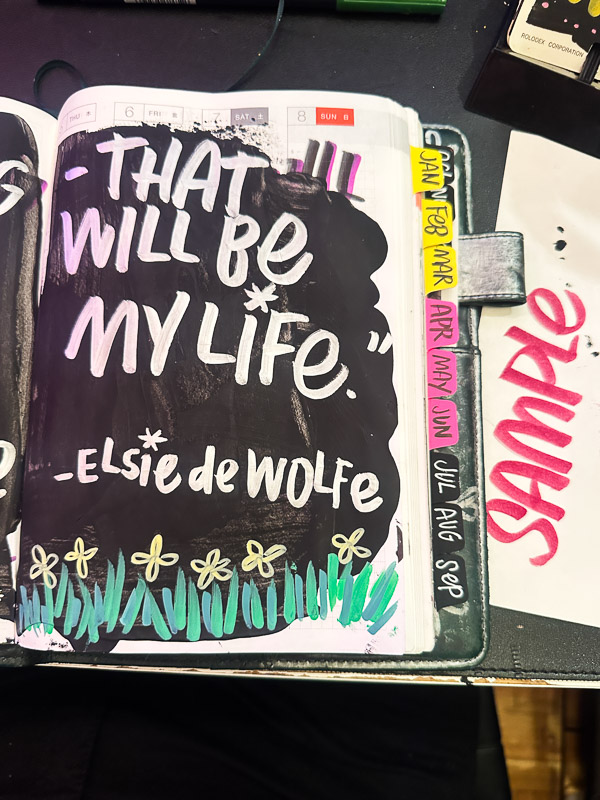 THU 木
6 FRI 金
7 SAT 土
8 SUN 日
- THAT
WILL Be
MY LiFe."
- ELSie de WOLFe
JAN
FeB
MAR
APR
MAY
JUN
JUL
AUG
Sep
ROLODEX CORPORATION
SAMPLe